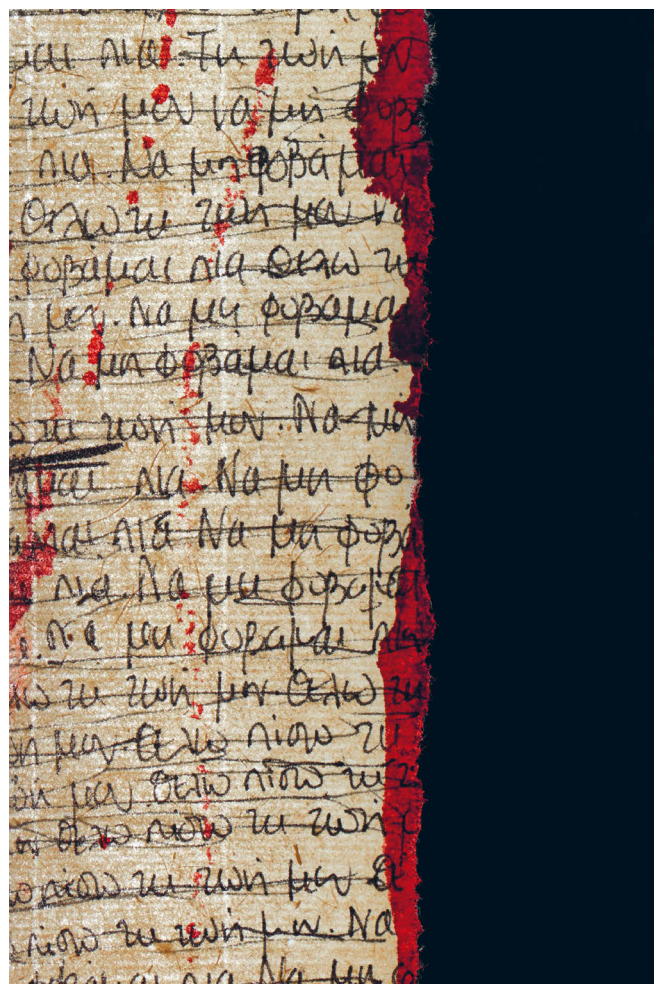 μαι πια. Τη ζωή μου
ζωή μου να μη φοβά
πια. Να μη φοβάμαι
Θελω τη ζωή μου να
φοβάμαι πια Θελω τη
μου. Να μη φοβαμα
. Να μη φοβαμαι πια.
τη ζωή μου. Να μη
αμαι πια. Να μη φο
μαι πια Να μη φοβά
πια. Να μη φοβαμαι
Να μη φοβαμαι πια
τη ζωή μου. Θελω τη
μου Θελω πισω τη
μου Θελω πισω τη
Θελω πισω τη ζωή
πισω τη ζωή μου Θ
πισω τη ζωή μου. Να
πια Να μη